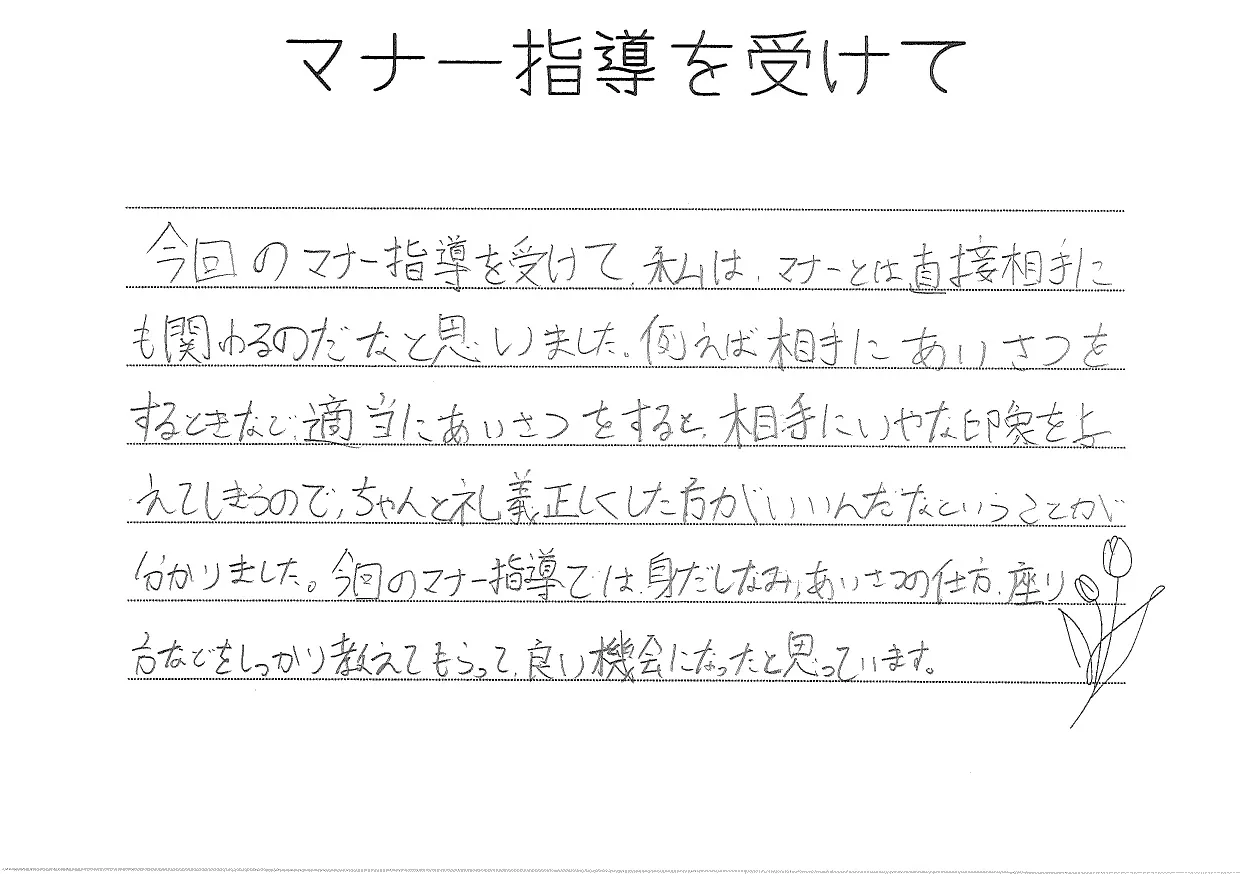 マナー指導を受けて
今回のマナー指導を受けて、私は、マナーとは直接相手に
も関わるのだなと思いました。例えば相手にあいさつを
するときなど、適当にあいさつをすると、相手にいやな印象を与
えてしまうので、ちゃんと礼義正しくした方がいいんだなということが
分かりました。今回のマナー指導では、身だしなみ、あいさつの仕方、座り
方などをしっかり教えてもらって、良い機会になったと思っています。